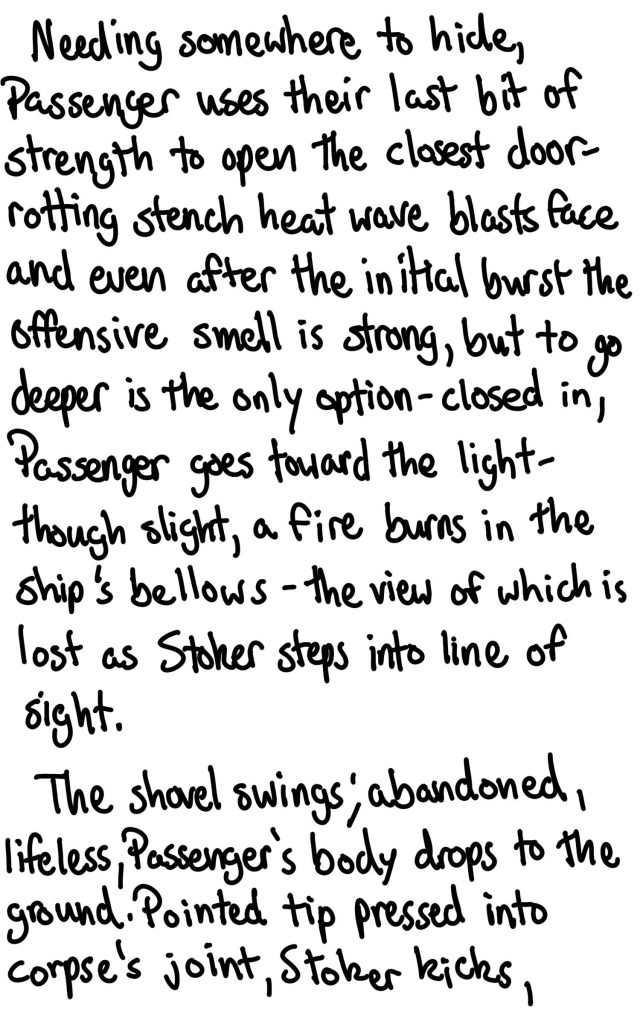 Needing somewhere to hide,
Passenger uses their last bit of
strength to open the closest door-
rotting stench heat wave blasts face
and even after the initial burst the
offensive smell is strong, but to go
deeper is the only option - closed in,
Passenger goes toward the light-
though slight, a fire burns in the
ship's bellows - the view of which is
lost as Stoker steps into line of
sight.
The shovel swings; abandoned,
lifeless, Passenger's body drops to the
ground. Pointed tip pressed into
corpse's joint, Stoker kicks,